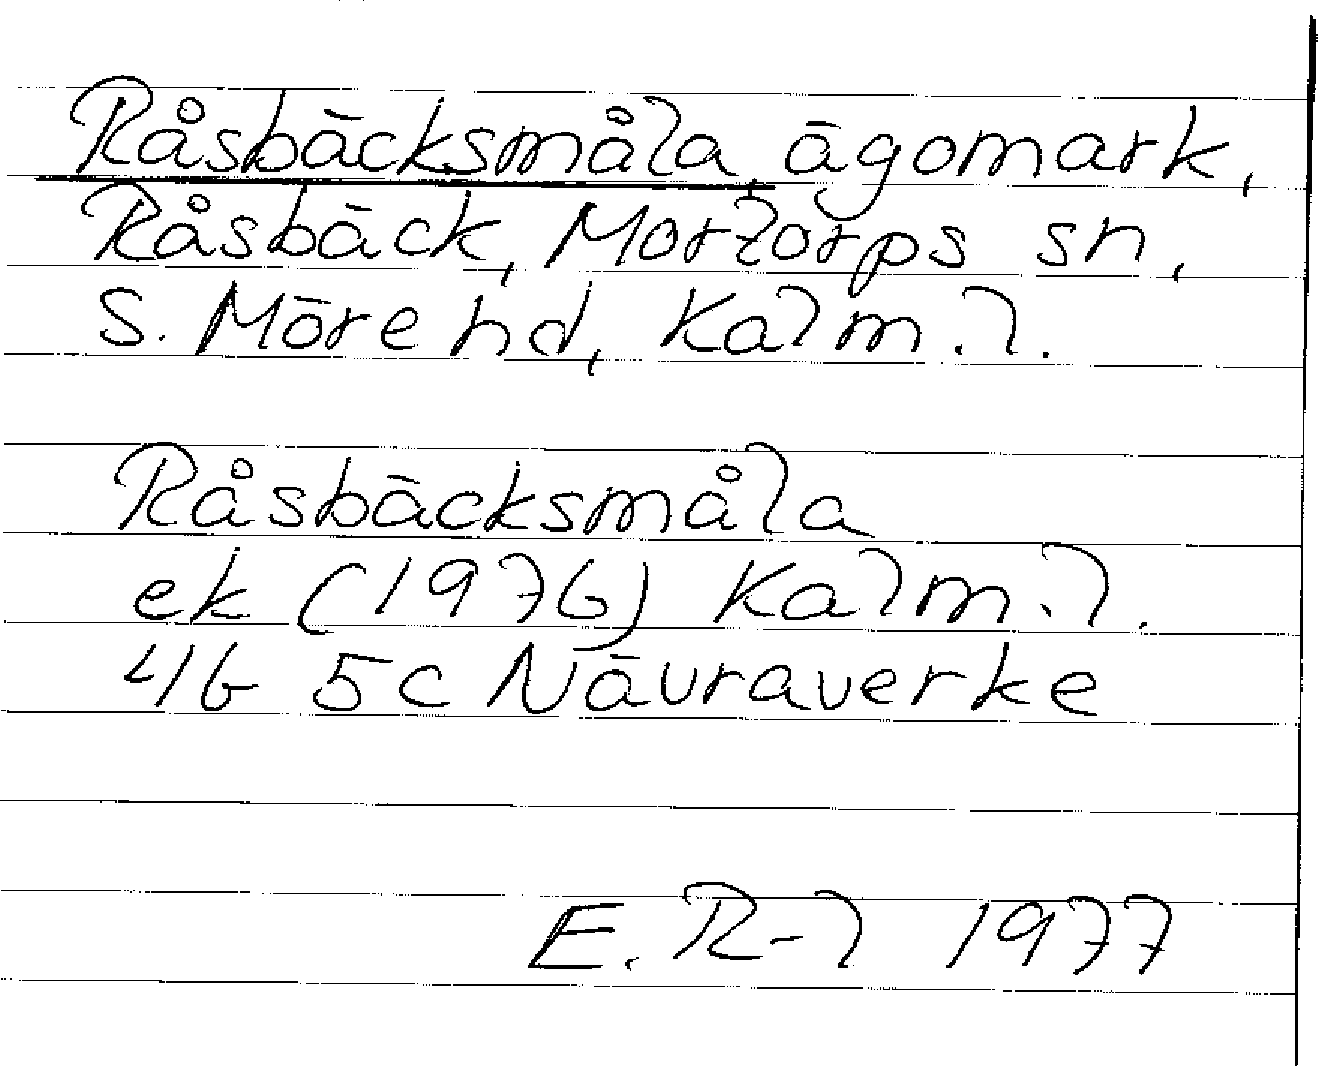 Råsbäcksmåla, ägomark,
Råsbäck, Mortorps sn,
S. Möre hd, Kalm. l.
Råsbäcksmåla
ek (1976) Kalm. l.
4G 5c Nävraverke
E. R-l 1977